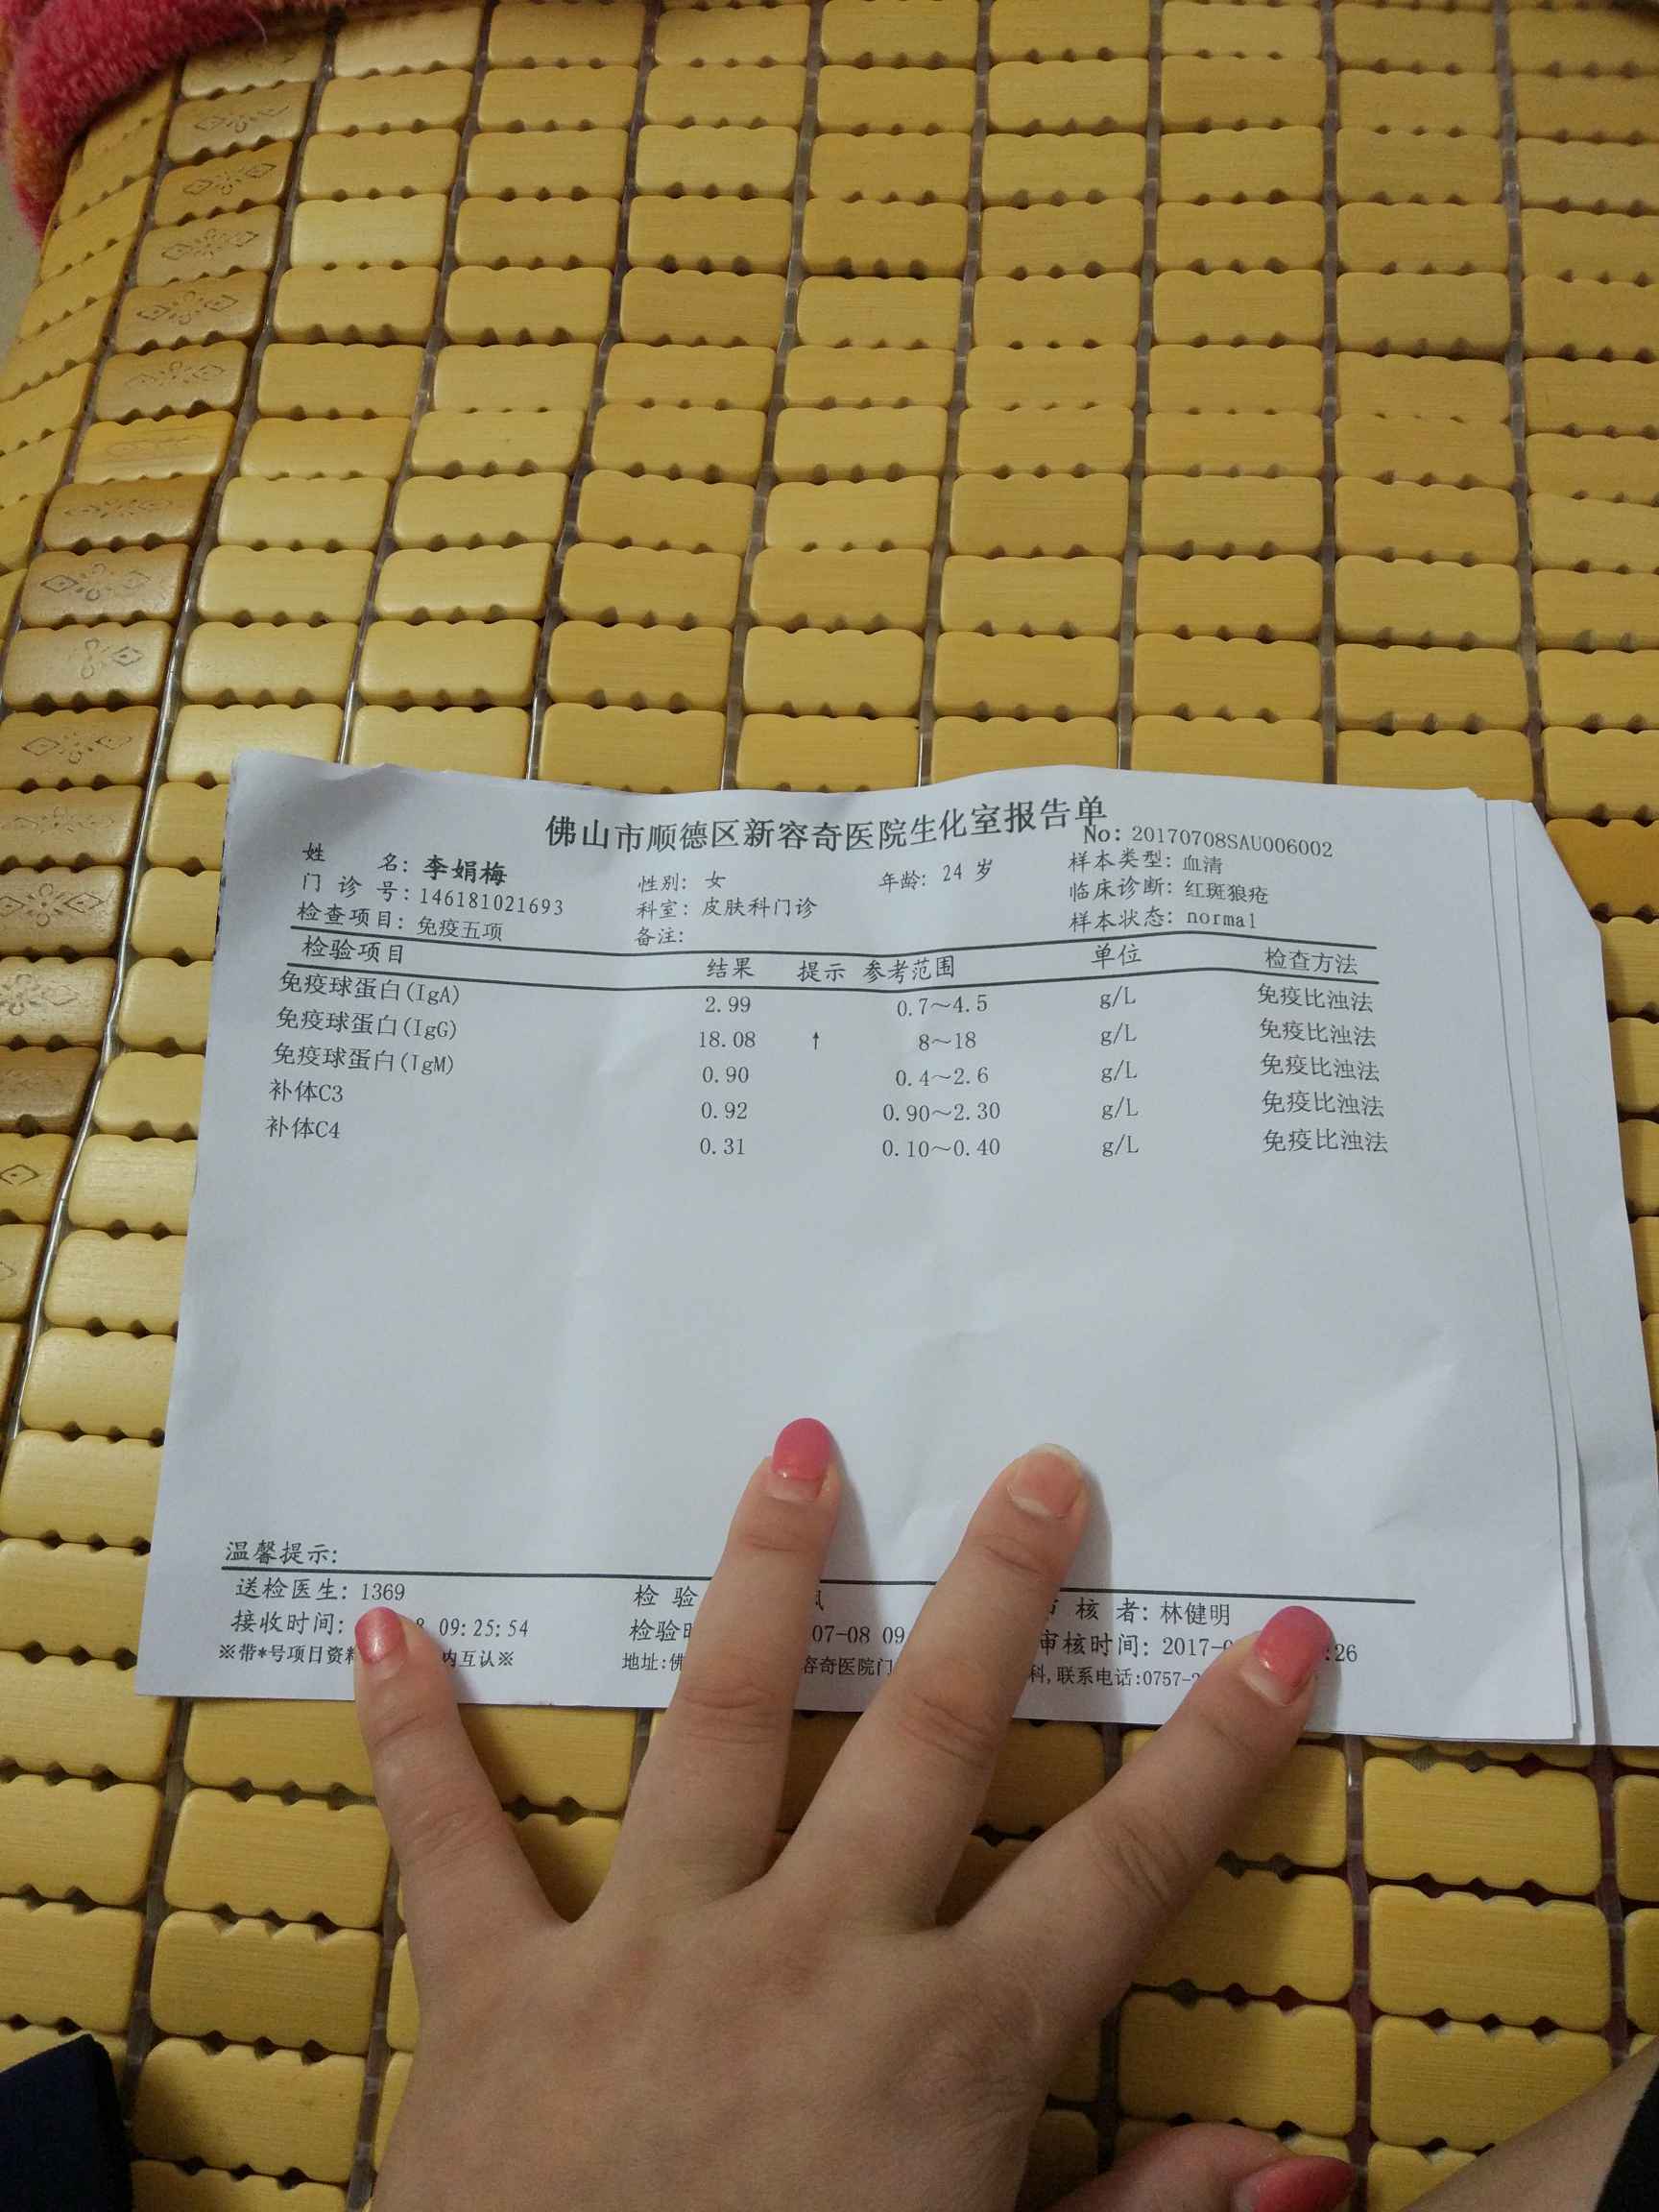 佛山市顺德区新容奇医院生化室报告单
No: 20170708SAU006002
姓 名: 李娟梅 性别: 女 年龄: 24 岁 样本类型: 血清
门 诊 号: 146181021693 科室: 皮肤科门诊 临床诊断: 红斑狼疮
检查项目: 免疫五项 备注: 样本状态: normal
检验项目 结果 提示 参考范围 单位 检查方法
免疫球蛋白(IgA) 2.99 0.7～4.5 g/L 免疫比浊法
免疫球蛋白(IgG) 18.08 ↑ 8～18 g/L 免疫比浊法
免疫球蛋白(IgM) 0.90 0.4～2.6 g/L 免疫比浊法
补体C3 0.92 0.90～2.30 g/L 免疫比浊法
补体C4 0.31 0.10～0.40 g/L 免疫比浊法
温馨提示:
送检医生: 1369 检 验 核 者: 林健明
接收时间: 8 09:25:54 检验 07-08 09 审核时间: 2017-0 :26
※带*号项目资料 内互认※ 地址:佛 容奇医院门 科,联系电话:0757-